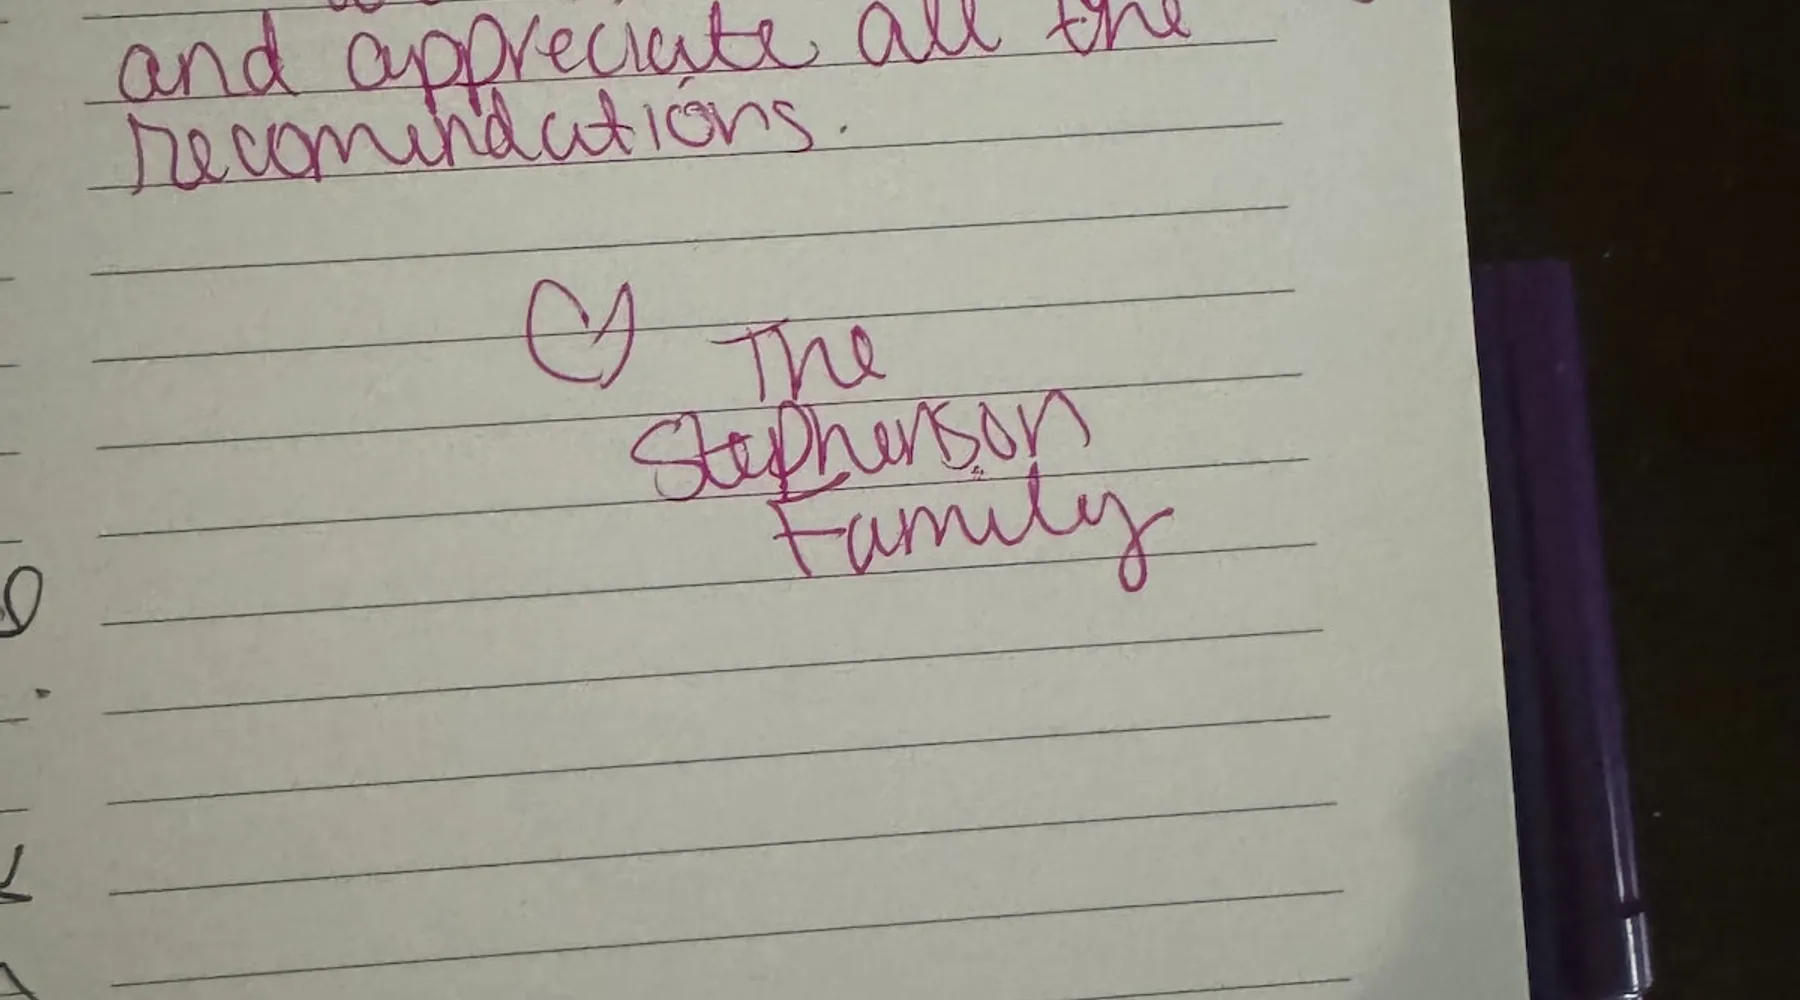 and appreciate all the
recomindations.
The
Stephenson
Family